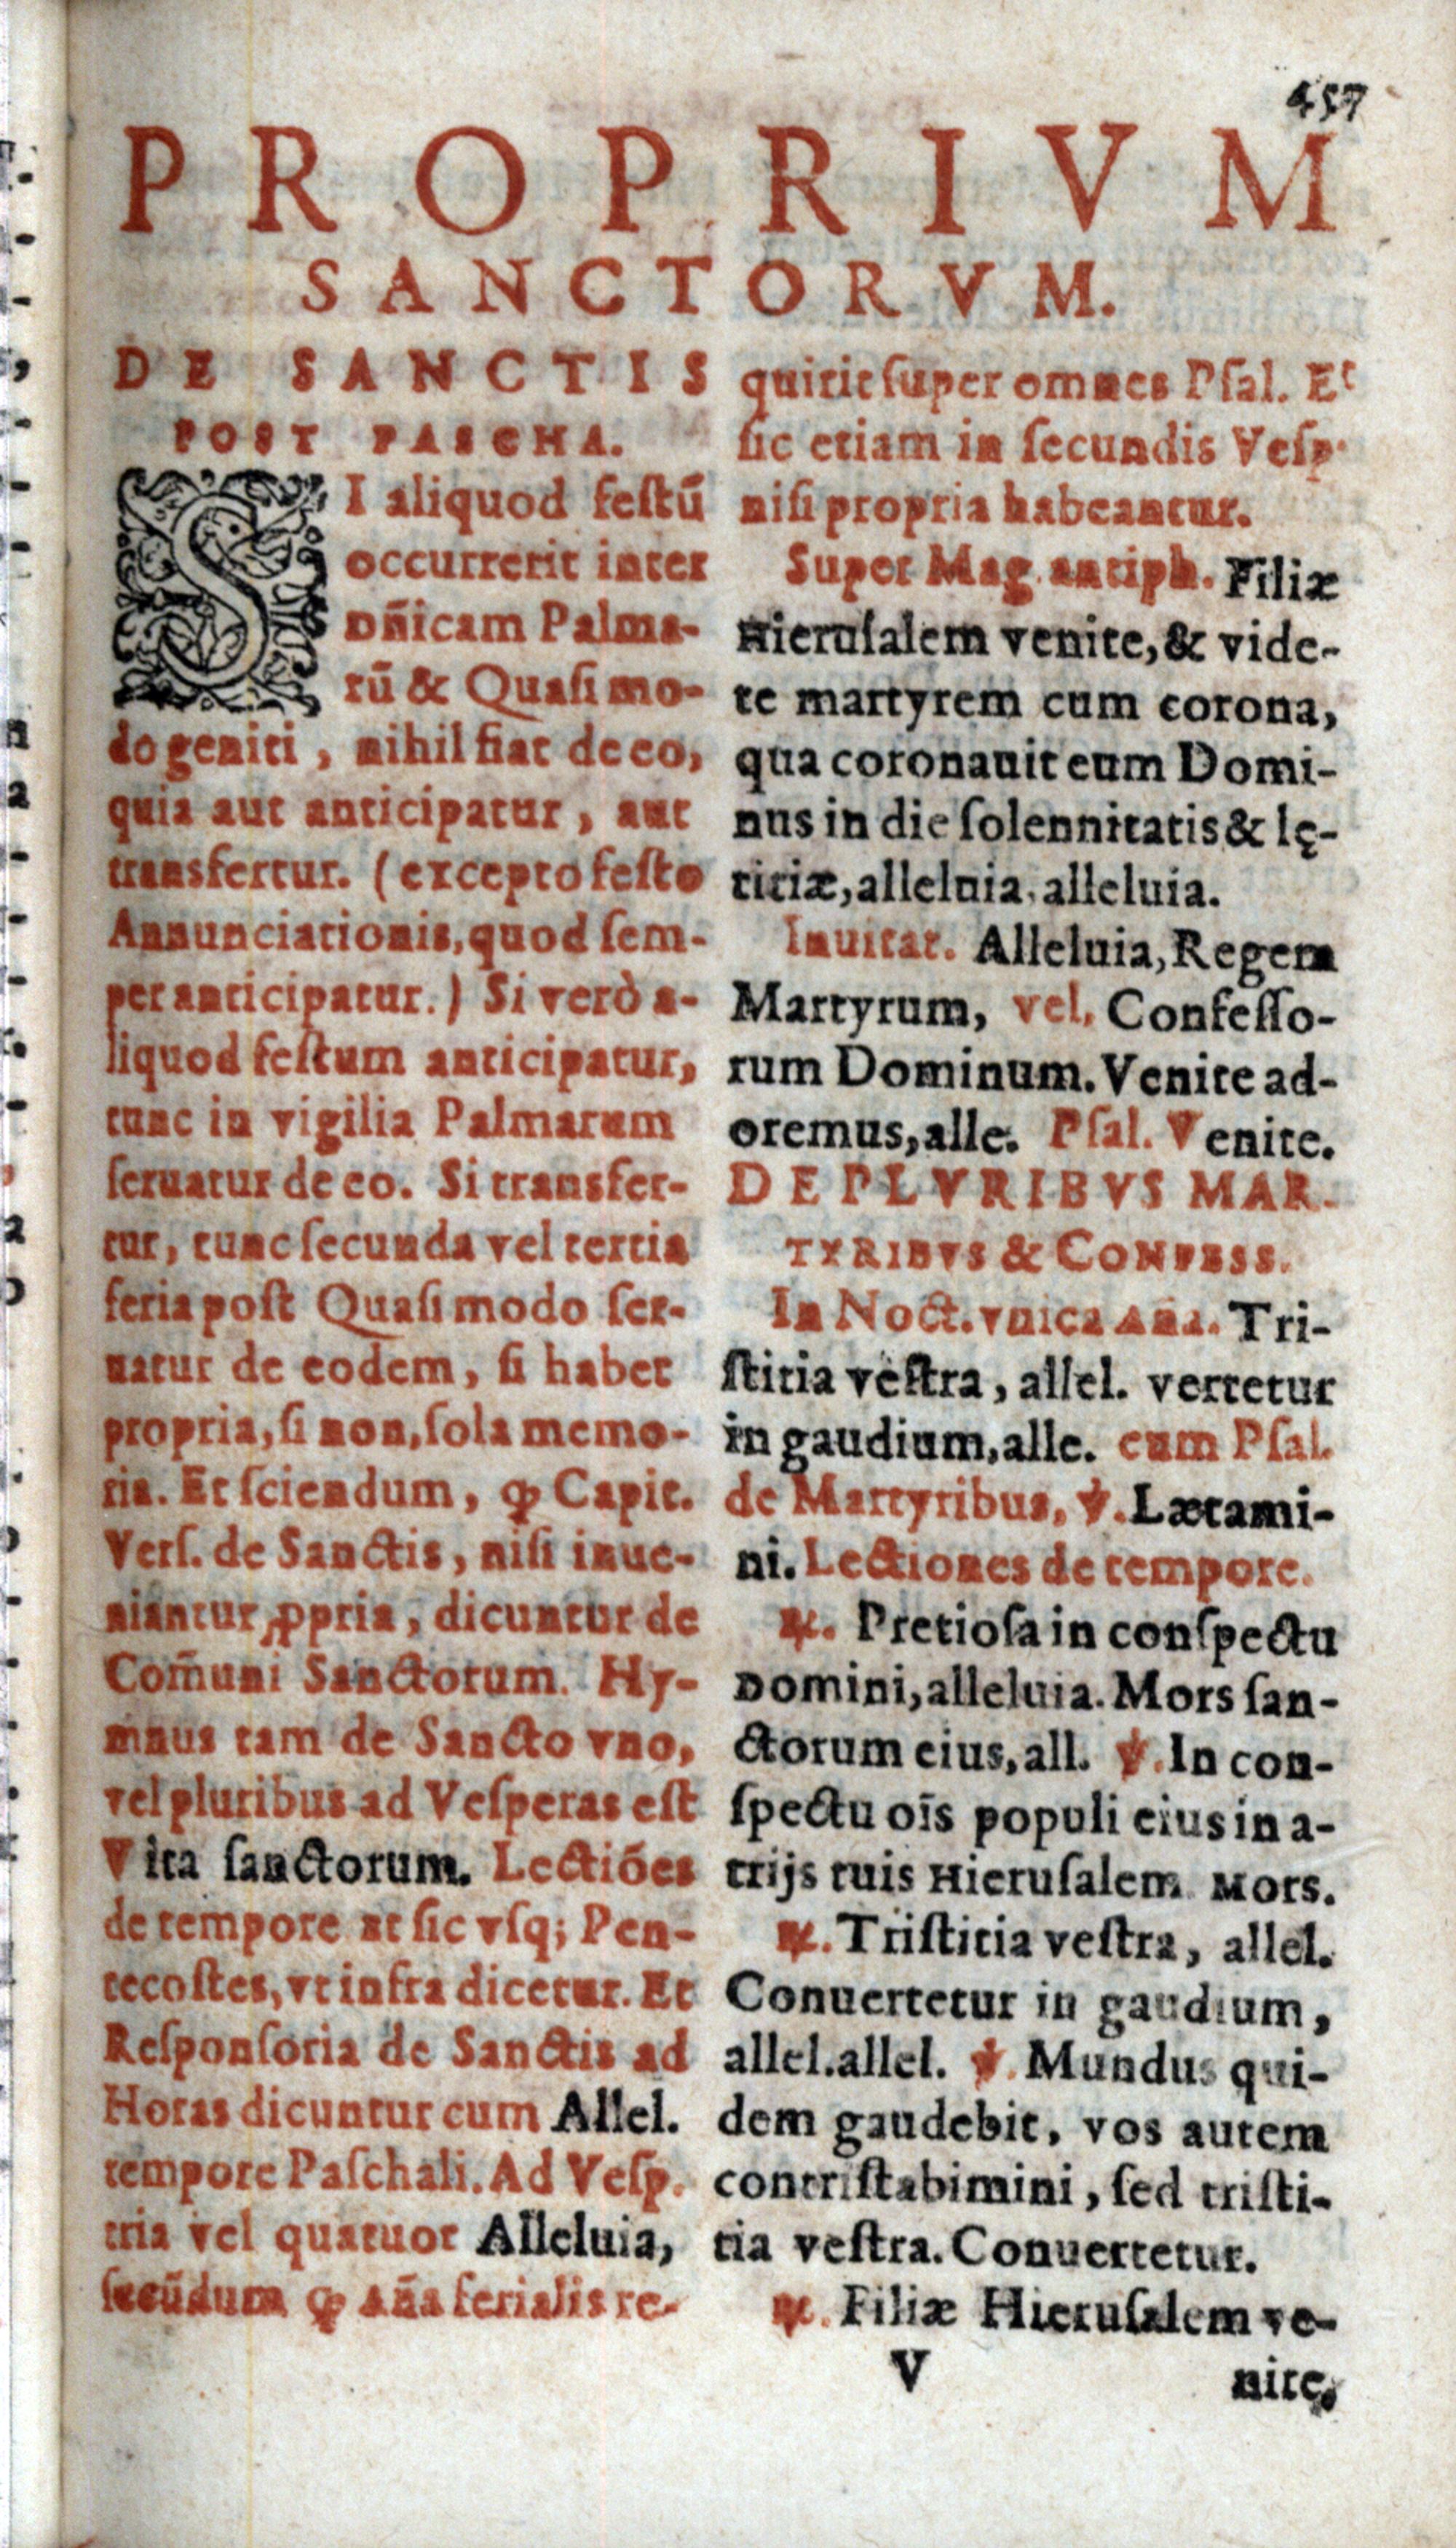 457
PROPRIVM
SANCTORVM.
DE SANCTIS
POST PASCHA.
SI aliquod feſtū
occurrerit inter
Dn̄icam Palma-
rū & Quaſi mo-
do geniti, nihil fiat de eo,
quia aut anticipatur, aut
transfertur. (excepto feſto
Annunciationis, quod ſem-
per anticipatur.) Si verò a-
liquod feſtum anticipatur,
tunc in vigilia Palmarum
ſeruatur de eo. Si transfer-
tur, tunc ſecunda vel tertia
feria poſt Quaſi modo ſer-
uatur de eodem, ſi habet
propria, ſi non, ſola memo-
ria. Et ſciendum, ꝙ Capit.
Verſ. de Sanctis, niſi inue-
niantur ꝓpria, dicuntur de
Com̄uni Sanctorum. Hy-
mnus tam de Sancto vno,
vel pluribus ad Veſperas eſt
Vita ſanctorum. Lectiōes
de tempore at ſic vſq; Pen-
tecoſtes, vt infra dicetur. Et
Reſponſoria de Sanctis ad
Horas dicuntur cum Allel.
tempore Paſchali. Ad Veſp.
tria vel quatuor Alleluia,
ſecūdum ꝙ Aña ferialis re-
quirit ſuper omnes Pſal. Et
ſic etiam in ſecundis Veſp.
niſi propria habeantur.
Super Mag. antiph. Filiæ
Hieruſalem venite, & vide-
te martyrem cum corona,
qua coronauit eum Domi-
nus in die ſolennitatis & lę-
titiæ, alleluia, alleluia.
Inuitat. Alleluia, Regem
Martyrum, vel, Confeſſo-
rum Dominum. Venite ad-
oremus, alle. Pſal. Venite.
DE PLVRIBVS MAR-
TYRIBVS & CONFESS.
In Noct. vnica Aña. Tri-
ſtitia veſtra, allel. vertetur
in gaudium, alle. cum Pſal.
de Martyribus, ℣. Lætami-
ni. Lectiones de tempore.
℟. Pretioſa in conſpectu
Domini, alleluia. Mors ſan-
ctorum eius, all. ℣. In con-
ſpectu oīs populi eius in a-
trijs tuis Hieruſalem Mors.
℟. Triſtitia veſtra, allel.
Conuertetur in gaudium,
allel. allel. ℣. Mundus qui-
dem gaudebit, vos autem
contriſtabimini, ſed triſti-
tia veſtra. Conuertetur.
℟. Filiæ Hieruſalem ve-
V nite,